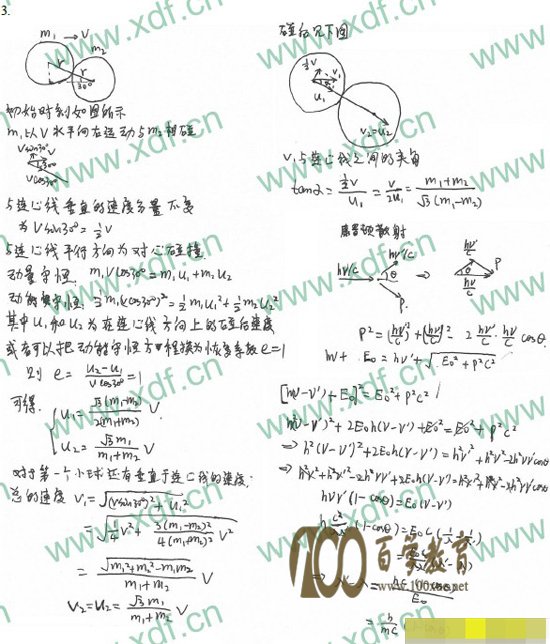 3.
m₁ → V
m₂
r
r
30°
初始时刻如图所示
m₁以V水平向右运动与m₂相碰
Vsin30°
30°
Vcos30°
与连心线垂直的速度分量不变
为Vsin30°=½V
与连心线平行方向为对心碰撞
动量守恒: m₁Vcos30°=m₁u₁+m₂u₂
动能守恒: ½m₁(Vcos30°)²=½m₁u₁²+½m₂u₂²
其中u₁和u₂为在连心线方向上的碰后速度
或者可以把动能守恒方程换为恢复系数e=1
则 e=(u₂-u₁)/(Vcos30°)=1
可得
u₁=√3(m₁-m₂)/2(m₁+m₂) V
u₂=√3m₁/(m₁+m₂) V
对于第一个小球还有垂直于连心线的速度:
总的速度 V₁=√((Vsin30°)²+u₁²)
=√(¼V²+3(m₁-m₂)²/4(m₁+m₂)² V²)
=√(m₁²+m₂²-m₁m₂)/(m₁+m₂) V
V₂=u₂=√3m₁/(m₁+m₂) V
碰后见下图
½V
V₁
u₁
V₂=u₂
V₁与连心线之间的夹角
tanα=½V/u₁=V/2u₁=(m₁+m₂)/√3(m₁-m₂)
康普顿散射
hν/c
hν'/c
θ
P
⇒
hν'/c
P
θ
hν/c
P²=(hν'/c)²+(hν/c)²-2 hν'/c · hν/c cosθ
hν+E₀=hν'+√(E₀²+P²c²)
[h(ν-ν')+E₀]²=E₀²+P²c²
h²(ν-ν')²+2E₀h(ν-ν')+E₀²=E₀²+P²c²
⇒h²(ν-ν')²+2E₀h(ν-ν')=h²ν'²+h²ν²-2h²νν'cosθ
⇒h²ν²+h²ν'²-2h²νν'+2E₀h(ν-ν')=h²ν'²+h²ν²-2h²νν'cosθ
hνν'(1-cosθ)=E₀(ν-ν')
(1-cosθ)=E₀c
E₀
=h/mc
www.xdf.cn
www.xdf.cn
www.xdf.cn
www.xdf.cn
www.xdf.cn
www.xdf.cn
www.xdf.cn
100
百学教育
www.100xue.net